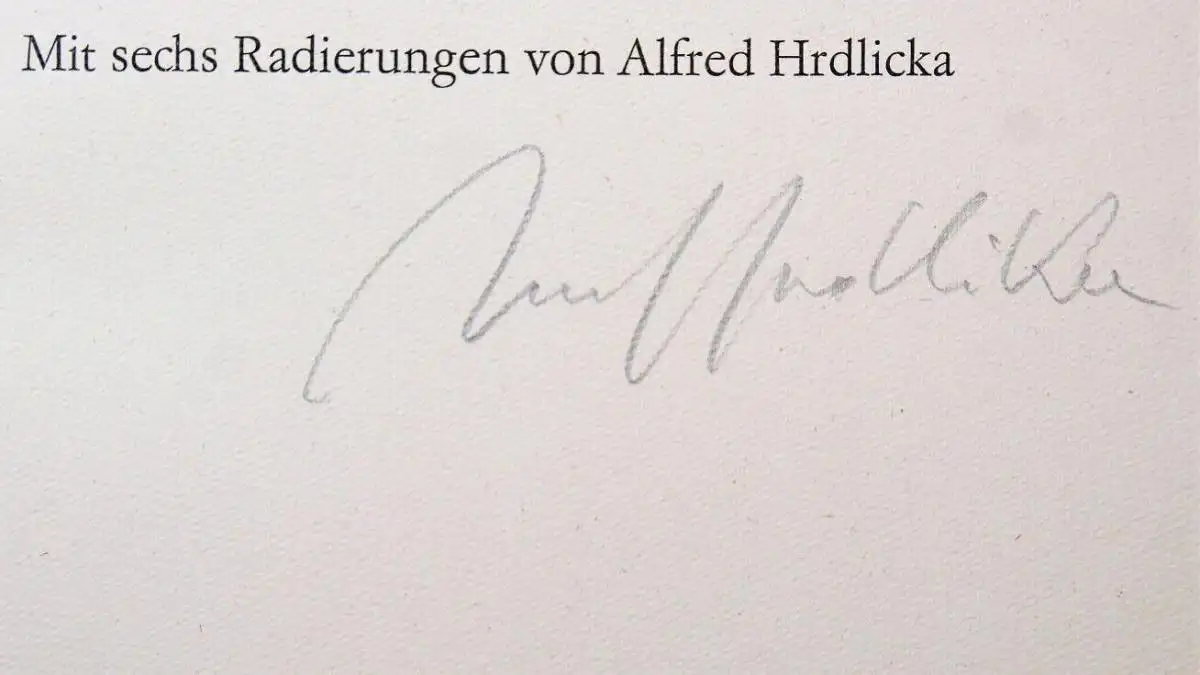 Mit sechs Radierungen von Alfred Hrdlicka
Hrdlicka